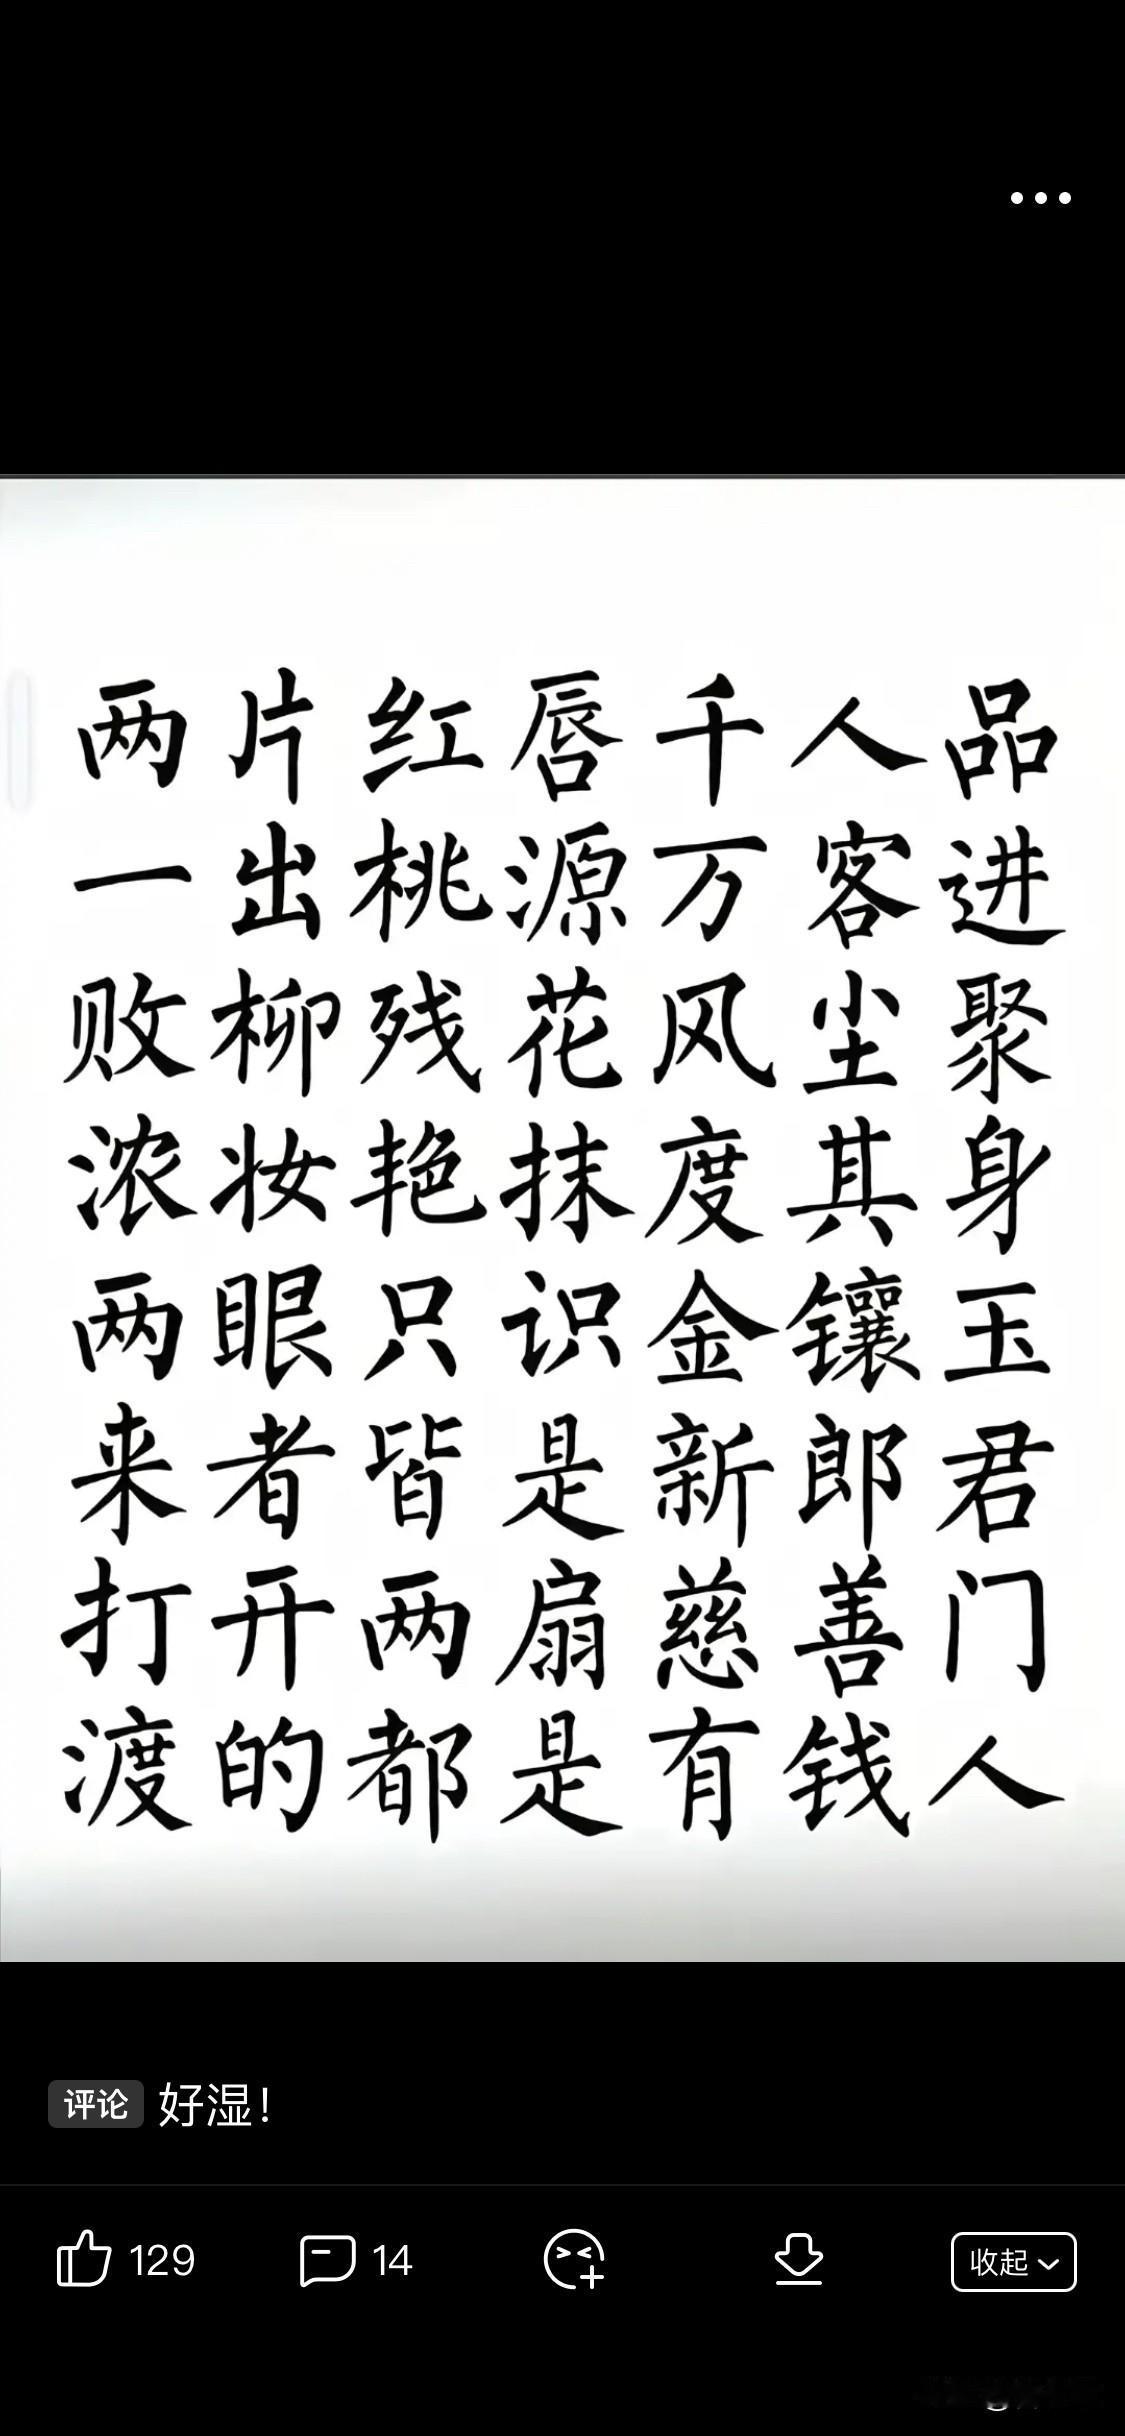 两片红唇千人品
一出桃源万客进
败柳残花风尘聚
浓妆艳抹度其身
两眼只识金镶玉
来者皆是新郎君
打开两扇慈善门
渡的都是有钱人
评论 好湿！
129 14 收起